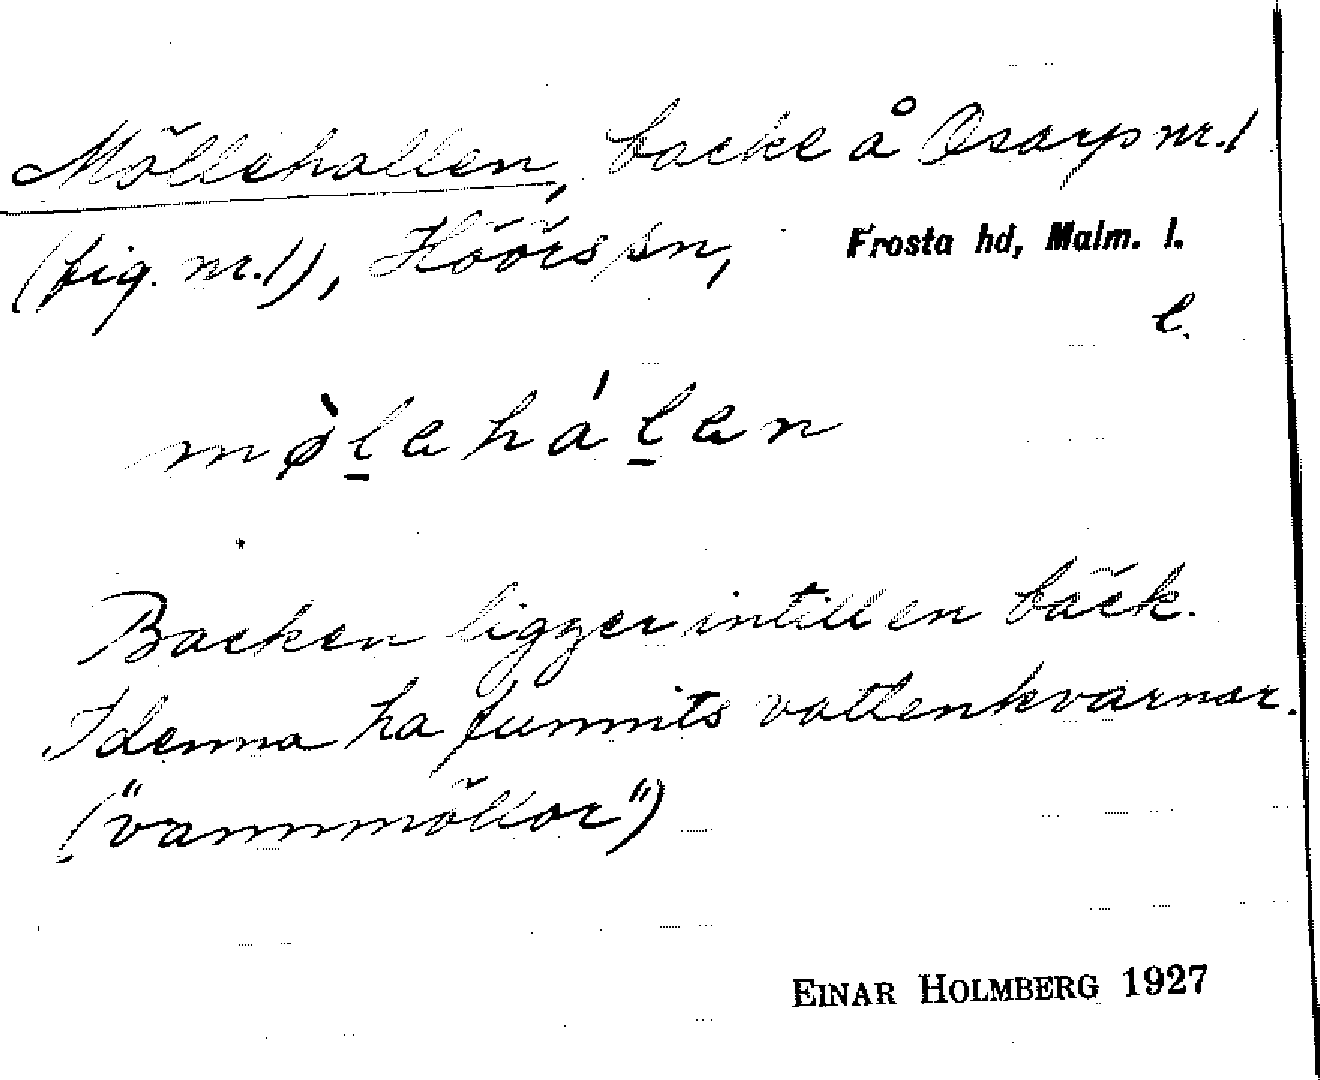 Möllehallen, backe å Osarp nr. 1
(fig. nr. 1), Höörs sn, Frosta hd, Malm. l.
l.
mø̀l̠ahál̠an
Backen ligger intill en bäck.
I denna ha funnits vattenkvarnar.
("vannmöllor")
EINAR HOLMBERG 1927